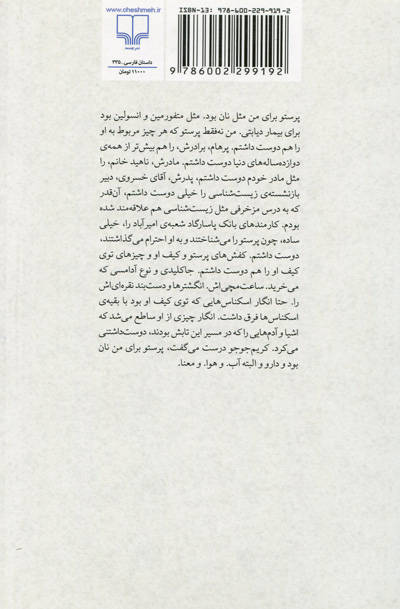 www.cheshmeh.ir
نشر چشمه
داستان فارسی ـ ۲۳۵
۱۱۰۰۰ تومان
ISBN-13: 978-600-229-919-2
9 786002 299192
پرستو برای من مثل نان بود. مثل متفورمین و انسولین بود
برای بیمار دیابتی. من نه‌فقط پرستو که هر چیز مربوط به او
را هم دوست داشتم. پرهام، برادرش، را هم بیش‌تر از همه‌ی
دوازده‌ساله‌های دنیا دوست داشتم. مادرش، ناهید خانم، را
مثل مادر خودم دوست داشتم. پدرش، آقای خسروی، دبیر
بازنشسته‌ی زیست‌شناسی را خیلی دوست داشتم، آن‌قدر
که به درس مزخرفی مثل زیست‌شناسی هم علاقه‌مند شده
بودم. کارمندهای بانک پاسارگاد شعبه‌ی امیرآباد را، خیلی
ساده، چون پرستو را می‌شناختند و به او احترام می‌گذاشتند،
دوست داشتم. کفش‌های پرستو و کیف او و چیزهای توی
کیف او را هم دوست داشتم. جاکلیدی و نوع آدامسی که
می‌خرید. ساعت‌مچی‌اش. انگشترها و دست‌بند نقره‌ای‌اش
را. حتا انگار اسکناس‌هایی که توی کیف او بود با بقیه‌ی
اسکناس‌ها فرق داشت. انگار چیزی از او ساطع می‌شد که
اشیا و آدم‌هایی را که در مسیر این تابش بودند، دوست‌داشتنی
می‌کرد. کریم‌جوجو درست می‌گفت، پرستو برای من نان
بود و دارو و البته آب. و هوا. و معنا.